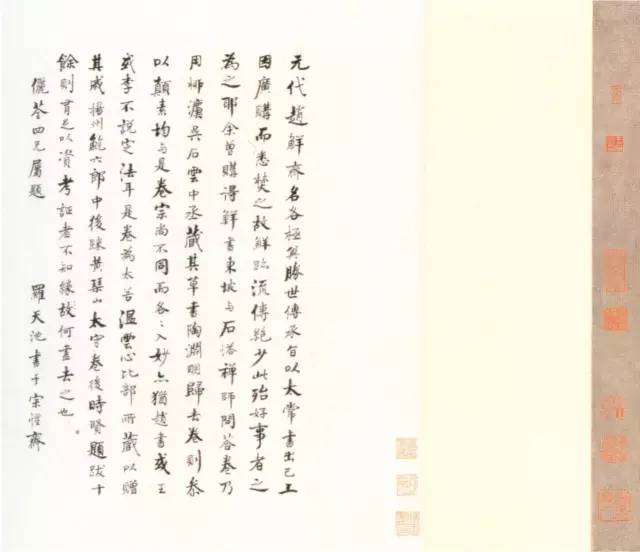 元代趙鮮齊名各極其勝世傳承旨以太常書出己上
因廣購而悉焚之故鮮跡流傳絕少此殆好事者
為之耶余曾購得鮮書東坡与石塔禪師問答卷乃
用柳濃吳石雲中丞藏其草書陶淵明歸去卷則參
以顛素均与是卷宗尚不同而各入妙亦猶趙書或王
或李不說定法耳是卷為太善溫雲心比部所藏以贈
其戚揚州鮑六郎中後歸黃琴山太守卷後時賢題跋十
餘則皆足以資考証者不知緣故何盡去之也
儷荃四兄屬題
羅天池書于宗愷齋